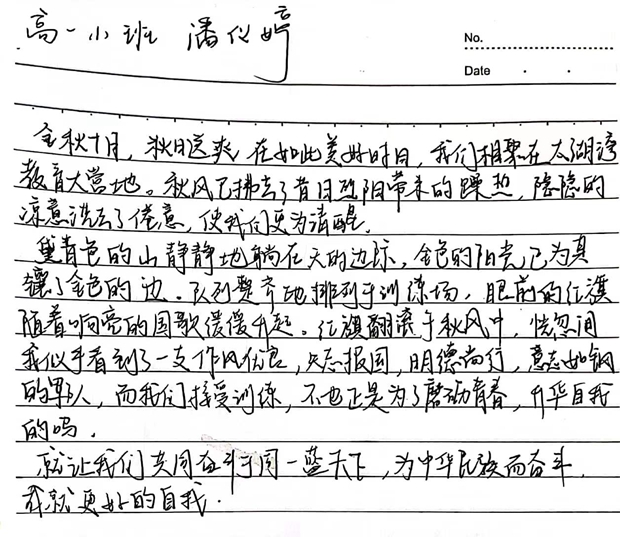 高一小班 潘仪婷
No.
Date . .
金秋十月，秋日送爽，在如此美好时日，我们相聚在太湖湾
教育大营地。秋风已拂去了昔日烈阳带来的躁热，隐隐的
凉意洗去了倦意，使我们更为清醒。
黛青色的山静静地躺在天的边际，金色的阳光已为其
镶了金色的边。队列整齐地排列于训练场，眼前的红旗
随着响亮的国歌缓缓升起。红旗翻滚于秋风中，恍忽间
我似乎看到了一支作风优良，矢志报国，明德尚行，意志如钢
的军队，而我们接受训练，不也正是为了磨砺青春，升华自我
的吗。
就让我们共同奋斗于同一蓝天下，为中华民族而奋斗，
成就更好的自我.